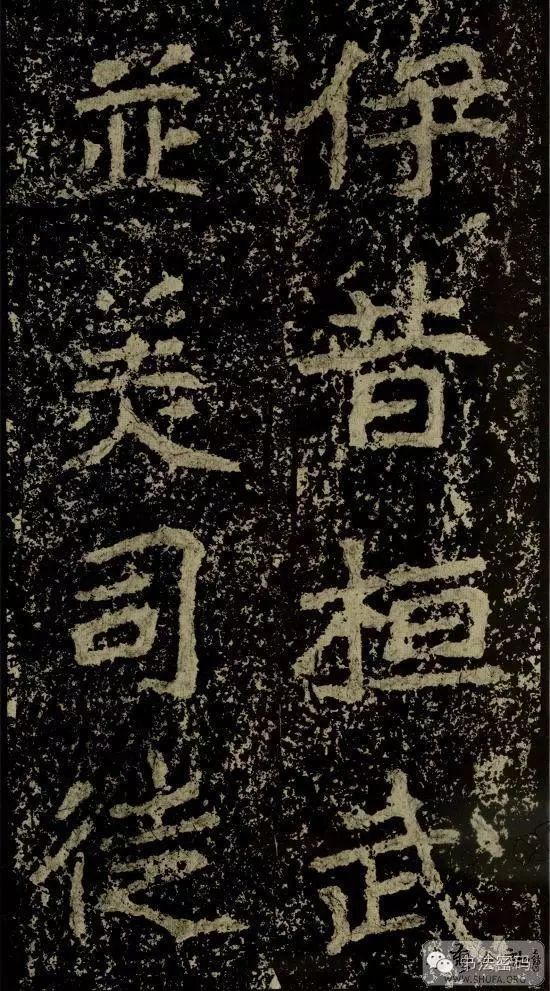 伊昔桓武
並美司徒
书法密码
WWW.SHUFA.ORG